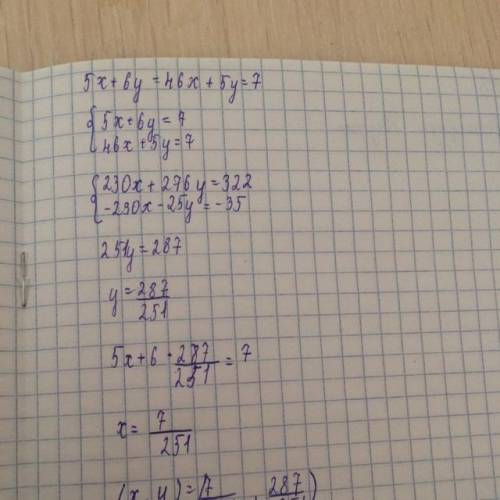 5x+6y=46x+5y=7
{5x+6y=7
46x+5y=7
{230x+276y=322
-230x-25y=-35
251y=287
y=287/251
5x+6·287/251=7
x=7/251
(x,y)=(7/251,287/251)